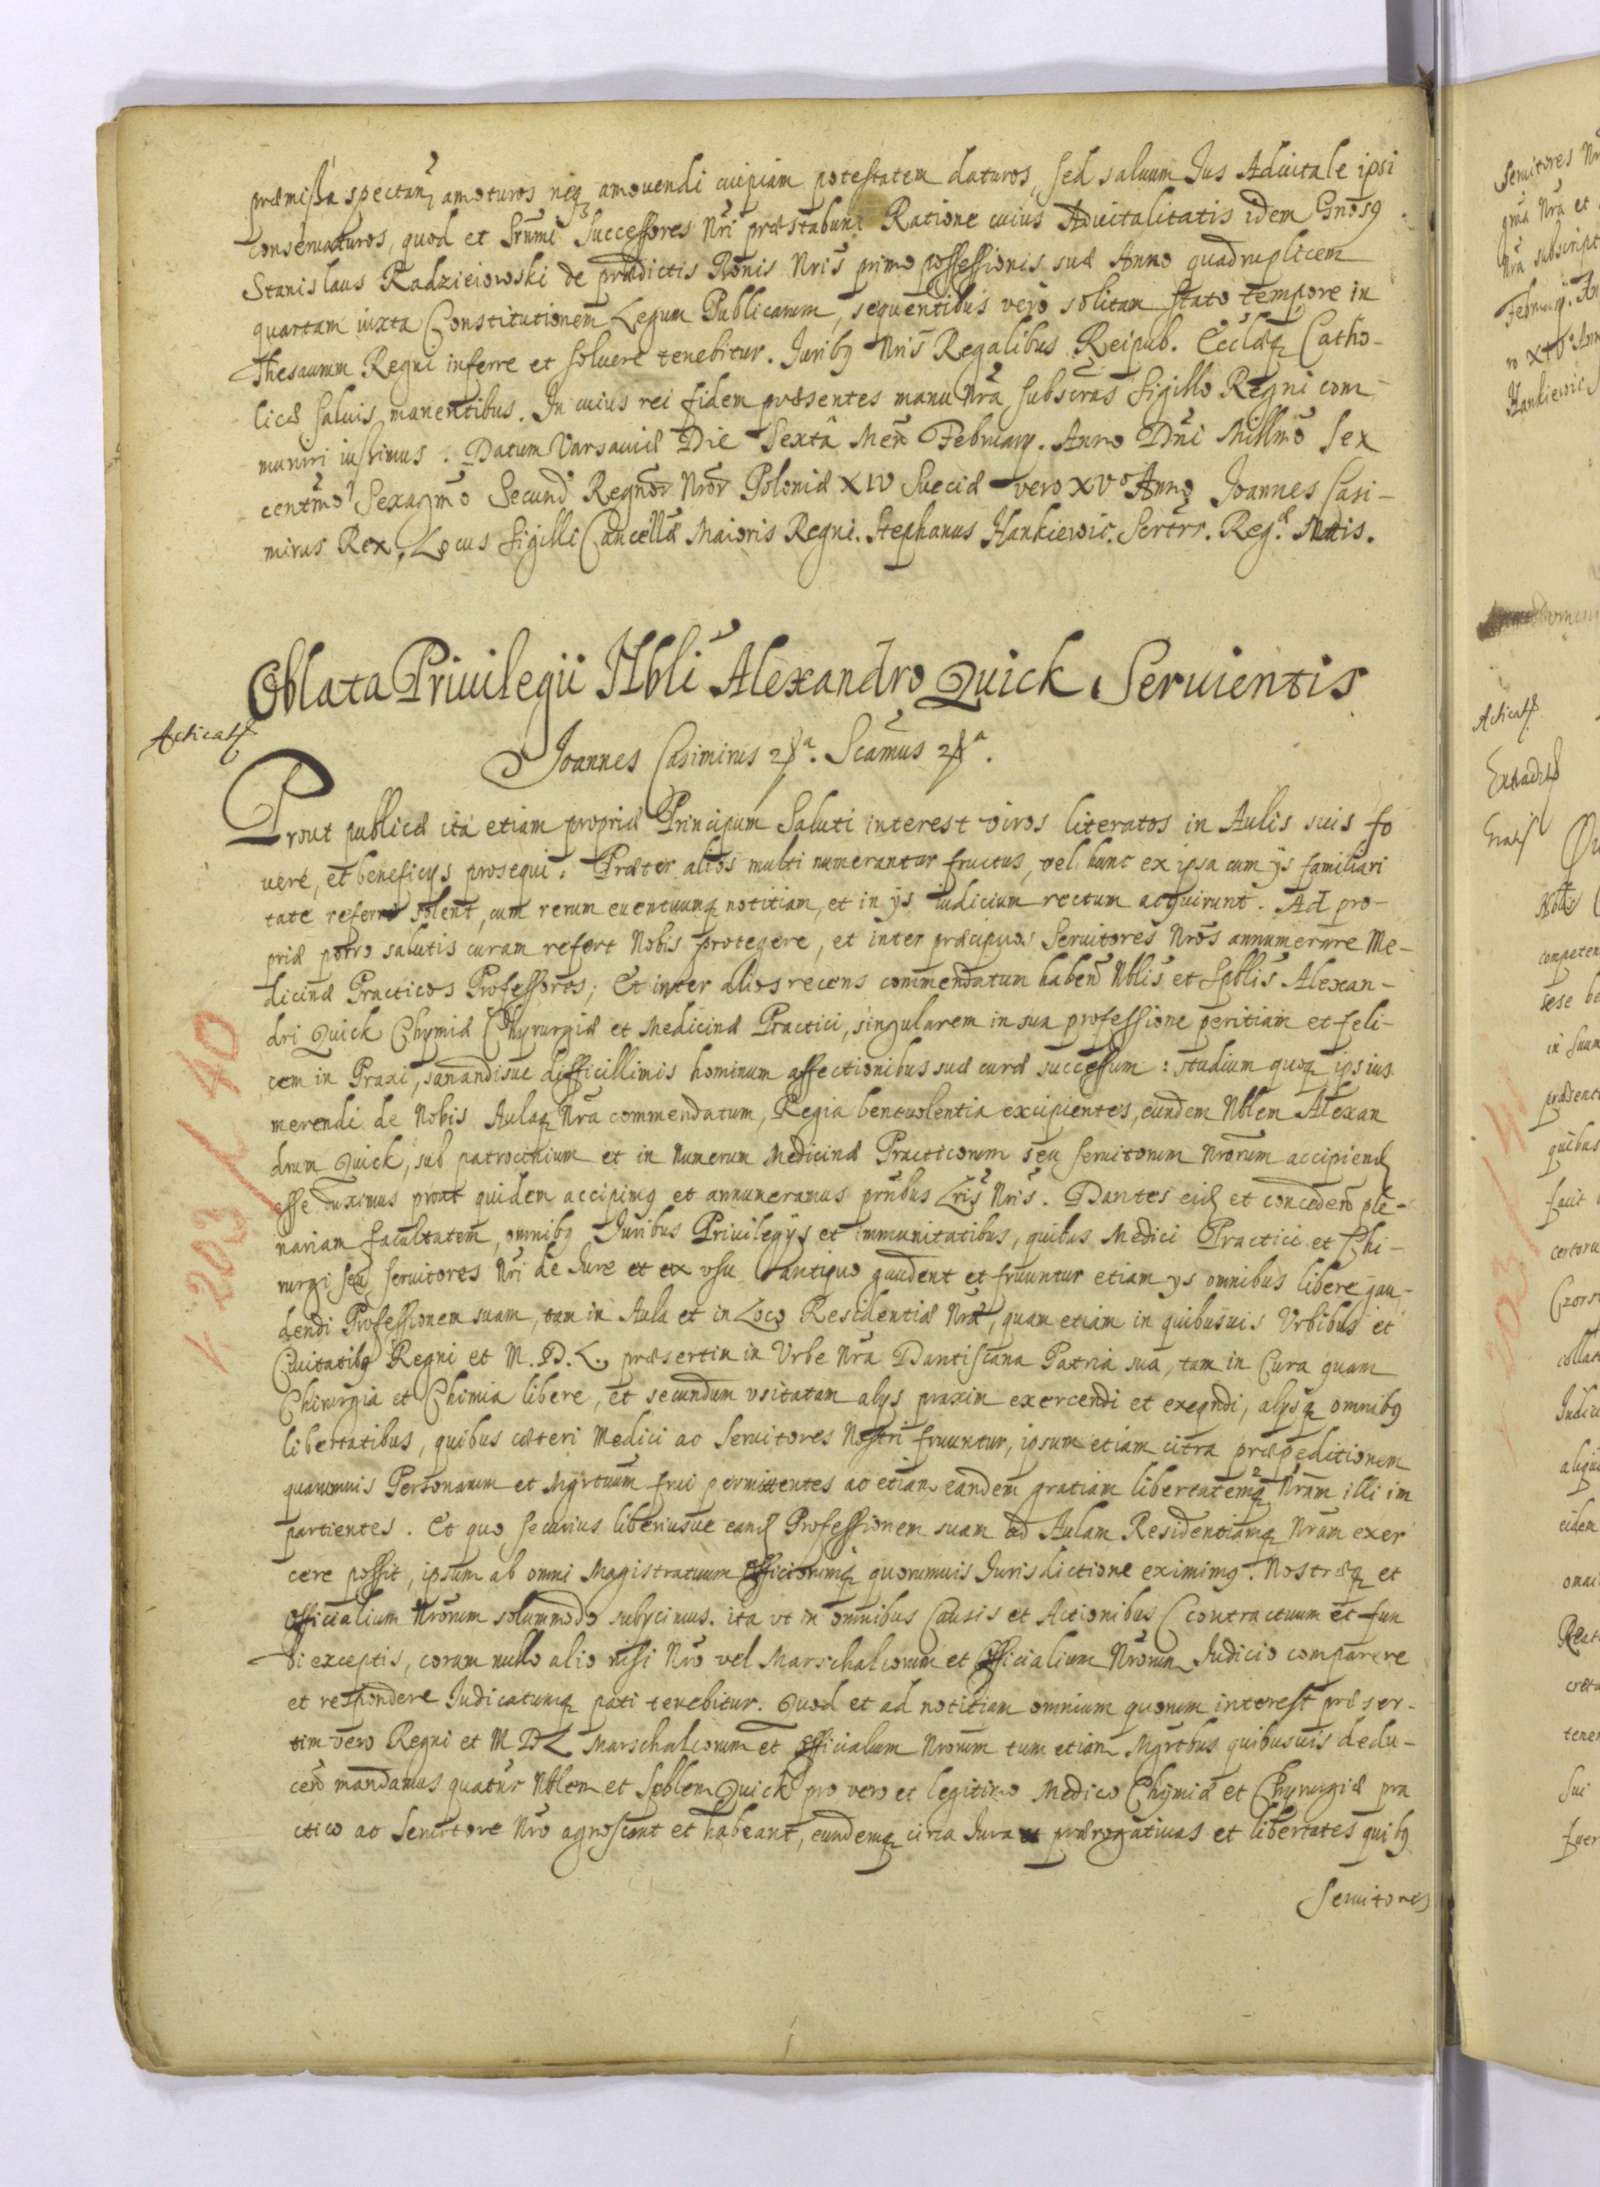 præmissa spectan amoturos neq amovendi cuipiam potestatem daturos, sed saluum Jus Aduitale ipsi
conseruaturos, quod et Srnmi Successores Nri præstabunt Ratione cuius Aduitalitatis idem Gnosg
Stanislaus Radzieiowski de prædictis Bonis Nris primo possessionis suæ Anno quadruplicem
quartam iuxta Constitutionem Legum Publicarum, sequentibus vero solitam stato tempore in
Thesaurum Regni inferre et soluere tenebitur. Juribg Nris Regalibus Reipub. Ecclæq Catho-
licæ saluis manentibus. In cuius rei fidem præsentes manu Nra subscras Sigillo Regni com-
muniri iussimus. Datum Varsauiæ Die Sexta Men February. Anno Dni Millmo Sex
centmo Sexagmo Secund Regnor Nror Poloniæ XIV Sueciæ vero XVo Anno Joannes Casi-
mirus Rex. Locus Sigilli Cancellæ Maioris Regni. Stephanus Hankiewic. Sertrr. Reg. Mtis.
Oblata Priuilegii Nbli Alexandro Quick Seruientis
Acticat
Joannes Casimirus a. Scamus a.
Prout publicæ ita etiam propriæ Principum Saluti interest viros literatos in Aulis suis fo
uere, et beneficys prosequi. Præter alios multi numerantur fructus, vel hunc ex ipsa cum ys familiari
tate referre solent, cum rerum euentuumq notitiam, et in ys iudicium rectum acquirunt. Ad pro-
priæ porro salutis curam refert Nobis protegere, et inter præcipuos Seruitores Nros annumerare Me-
dicinæ Practicos Professores; Et inter alios recens commendatum haben Nblis et Spblis Alexan-
dri Quick Chymiæ Chyrurgiæ et Medicinæ Practici, singularem in sua professione peritiam et feli-
cem in Praxi, sanandisue difficillimis hominum affectionibus suæ curæ successum: studium quoq ipsius
merendi de Nobis Aulaq Nra commendatum, Regia beneuolentia excipientes, eundem Nblem Alexan
drum Quick, sub patrocinium et in Numerum Medicinæ Practicorum seu seruitorum Nrorum accipiend
esse duximus prout quidem accipimg et annumeramus pntibus Lris Nris. Dantes eid et conceden ple-
nariam facultatem, omnibg Juribus Priuilegys et immunitatibus, quibus Medici Practici et Chi-
rurgi seu seruitores Nri de Jure et ex vsu antiquo gaudent et fruuntur etiam ys omnibus libere gau-
dendi Professionem suam, tam in Aula et in Loco Residentiæ Nræ, quam etiam in quibusuis Vrbibus et
Ciuitatibg Regni et M. D. L. præsertim in Vrbe Nra Dantiscana Patria sua, tam in Cura quam
Chirurgia et Chimia libere, et secundum vsitatam alys praxim exercendi et exeqndi, alysq omnibg
libertatibus, quibus cæteri Medici ac Seruitores Nostri fruuntur, ipsum etiam citra præpeditionem
quarumuis Personarum et Mgrtuum frui permittentes ac etiam eandem gratiam libertatemq Nram illi im
partientes. Et quo securius liberiusue eand Professionem suam ad Aulam Residentiamq Nram exer
cere possit, ipsum ab omni Magistratuum Officiorumq quorumuis Jurisdictione eximimg. Nostræq et
Officialium Nrorum solummodo subycimus. ita vt in omnibus Causis et Actionibus Contractuum et fun
di exceptis, coram nullo alio nisi Nro vel Marschalcorum et Officialium Nrorum Judicio comparere
et respondere Judicatumq pati tenebitur. Quod et ad notitiam omnium quorum interest præser-
tim vero Regni et M D L Marschalcorum et Officialium Nrorum tum etiam Mgrtbus quibusuis dedu-
cen mandamus quatur Nblem et Spblem Quick pro vero et legitimo Medico Chymiæ et Chyrurgiæ pra
ctico ac Seruitore Nro agnoscant et habeant, eundemq circa Jura et prærogatiuas et libertates quibg
Seruitores
203 / 40